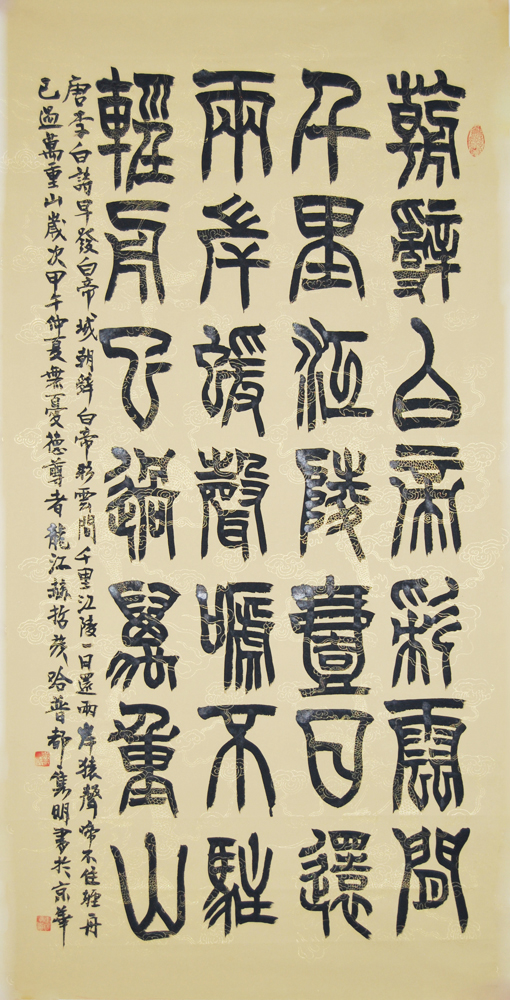 朝辭白帝彩雲間
千里江陵壹日還
兩岸蝯聲嗁不駐
輕舟已過萬重山
唐李白詩早發白帝城朝辭白帝彩雲間千里江陵一日還兩岸猿聲啼不住輕舟
已過萬重山歲次甲午仲夏無憂德尊者龍江赫哲茂哈普都隽明書於京華